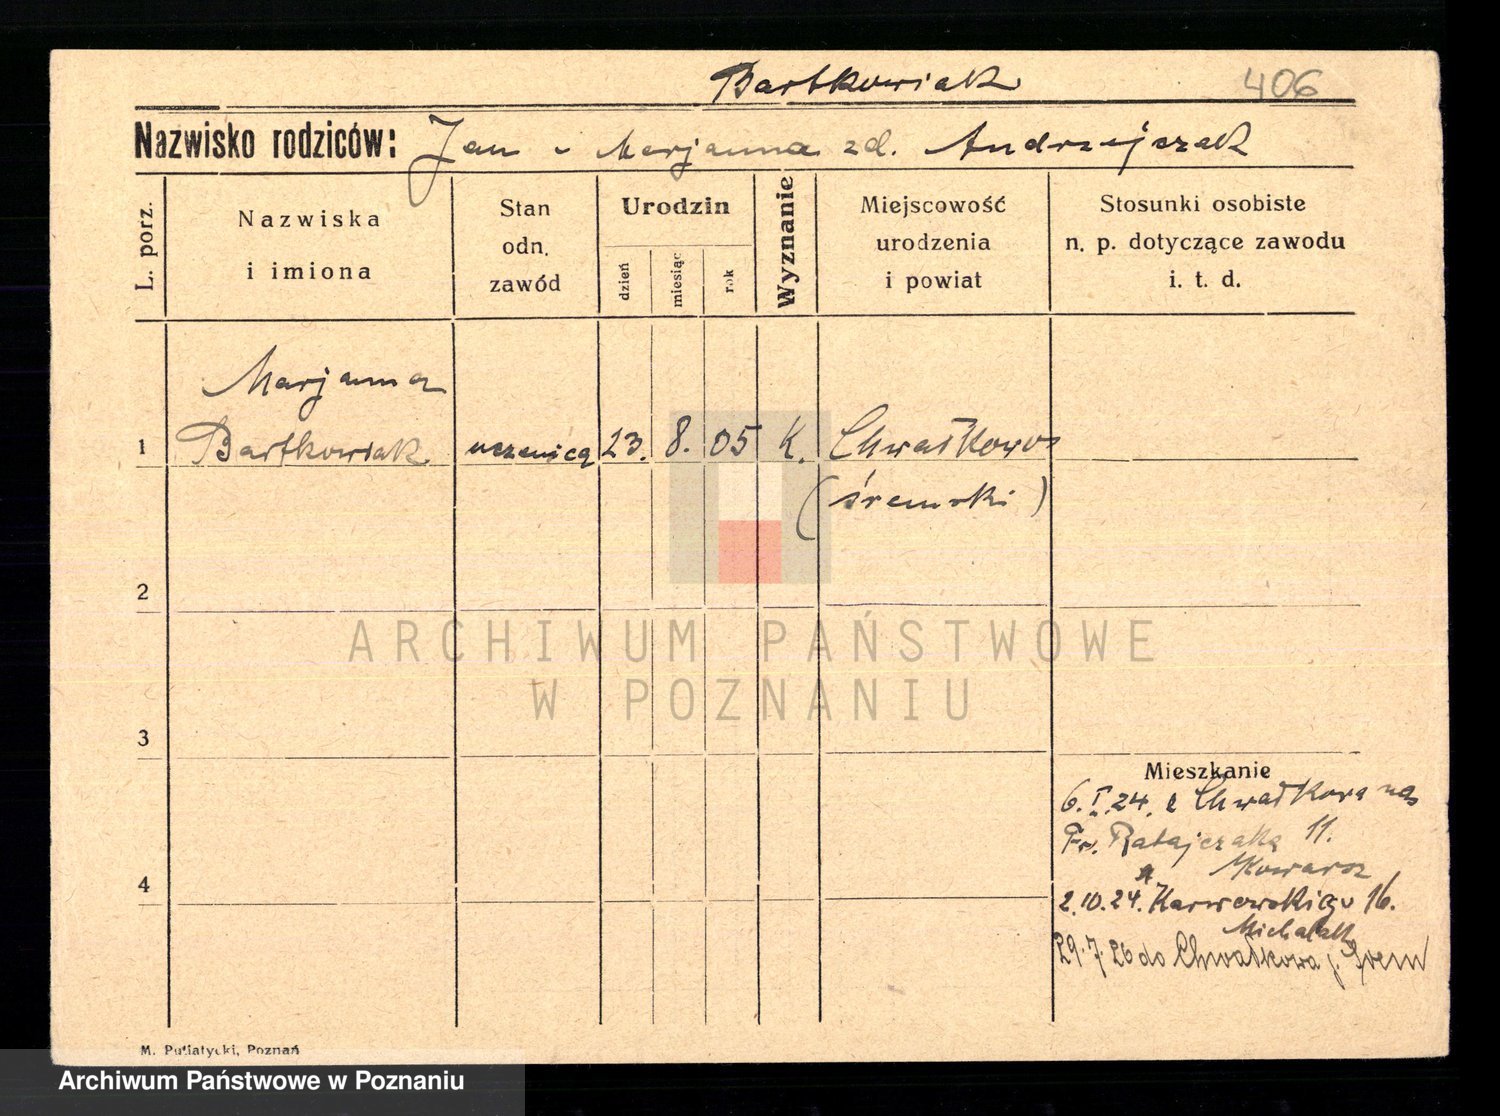 Bartkowiak 406
Nazwisko rodziców: Jan i Marjanna zd. Andrzejczak
L. porz.
Nazwiska
i imiona
Stan
odn.
zawód
Urodzin
dzień
miesiąc
rok
Wyznanie
Miejscowość
urodzenia
i powiat
Stosunki osobiste
n. p. dotyczące zawodu
i. t. d.
Marjanna
1 Bartkowiak uczenicą 23. 8. 05 K. Chwałkowo
(śremski)
2
ARCHIWUM PAŃSTWOWE
W POZNANIU
3
Mieszkanie
6.I.24. z Chwałkowa na
Fr. Ratajczaka 11.
4
2.10.24. 16.
Michalak
29.7.26 do Chwałkowa p. Śrem
M. Putiatycki, Poznań
Archiwum Państwowe w Poznaniu